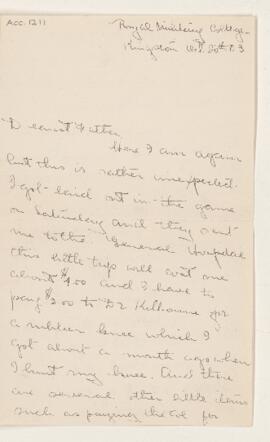 ACC. 1211
Royal Military College
Kingston Oct. 20th. 03
Dearest Father,
Here I am again
but this is rather unexpected.
I got laid out in the game
on Saturday and they sent
me to the "General Hospital
this little trip will cost me
about $4.00 and I have to
pay $3.00 to Dr Kilborne for
a rubber knee which I
got about a month ago when
I hurt my knee. And there
are several other little items
such as paying the for